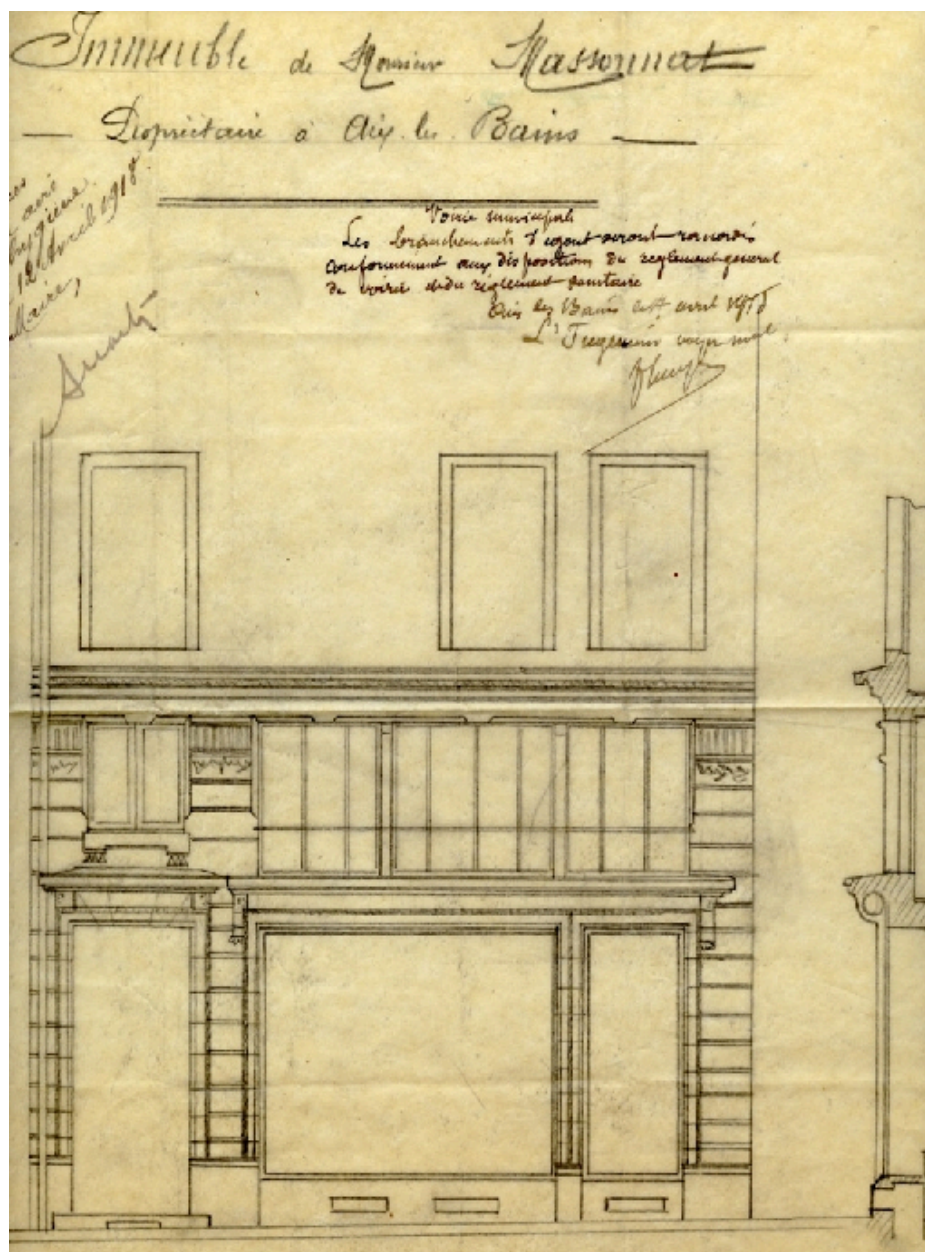 Immeuble de Monsieur Massonnat
Propriétaire à Aix-les-Bains
avis
hygiène
12 Avril 1918
Maire,
Voirie municipale
Les branchements d'égout seront raccordés
conformément aux dispositions du règlement général
de voirie et du règlement sanitaire
Aix les Bains le avril 1918
L'Ingénieur voyer